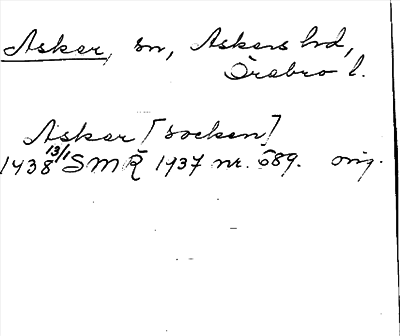 Asker, sn, Askers hd,
Örebro l.
Asker [socken]
1438 13/1 SMR 1937 nr. 689. orig.